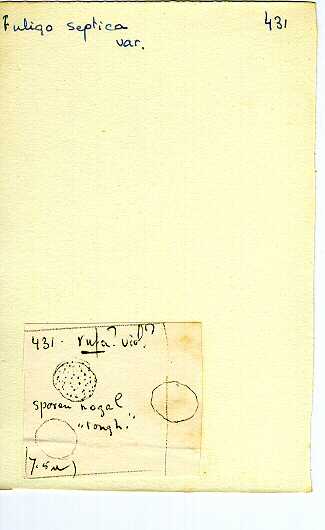 Fuligo septica 431
var.
431. rufa? vio?
sporen nogal
"rough."
(7.5 µ)